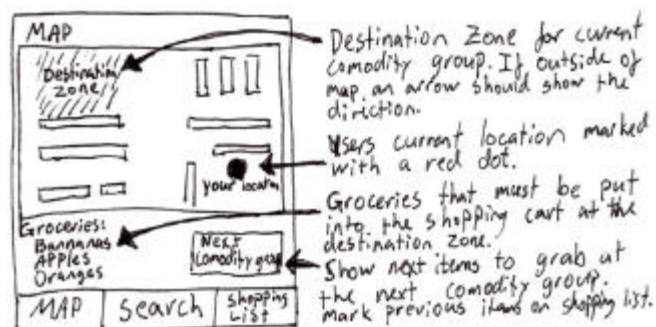 MAP
Destination
zone
your locatin
Groceries:
Bannanas
APPles
Oranges
Next
Comodity group
MAP
Search
Shopping
List
Destination Zone for current
comodity group. If outside of
map an arrow should show the
direction.
Users current location marked
with a red dot.
Groceries that must be put
into the shopping cart at the
destination zone.
Show next items to grab at
the next comodity group.
mark previous items on shopping list.